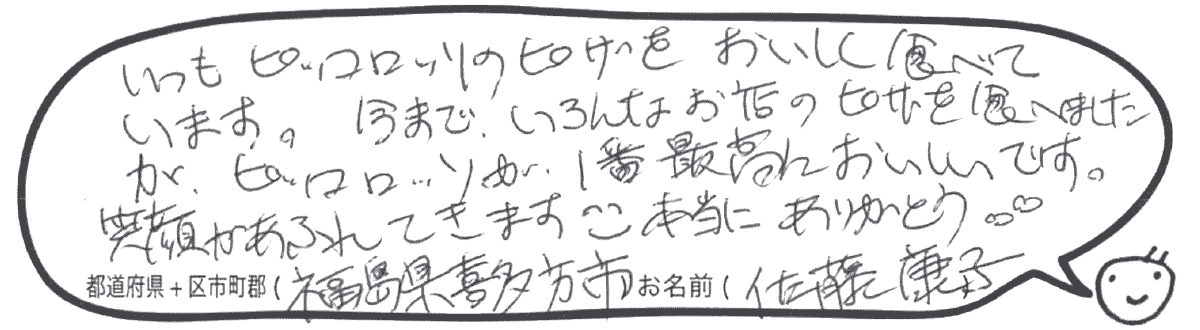 いつもピッコロッソのピザをおいしく食べて
います。今まで、いろんなお店のピザを食べました
が、ピッコロッソが、1番最高においしいです。
笑顔があふれてきます 本当にありがとう
都道府県+区市町郡(福島県喜多方市)お名前(佐藤康子